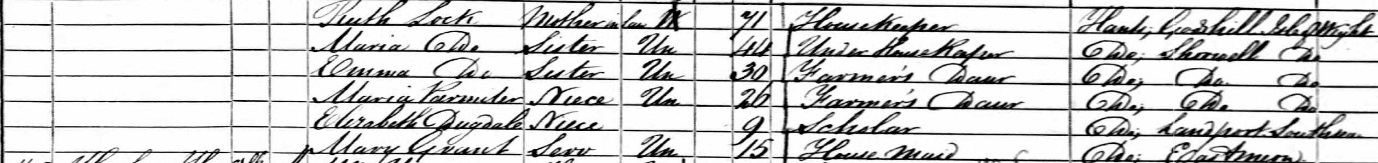 Ruth Lock Mother in law W 71 Housekeeper Hants; Godshill Isle of Wight
Maria Do Sister Un 44 Under Housekeeper Do; Shorwell Do
Emma Do Sister Un 30 Farmer's Daur Do; Do Do
Maria Parmiter Niece Un 26 Farmer's Daur Do; Do Do
Elizabeth Dugdale Niece 9 Scholar Do; Landport Southsea
Mary Grant Serv Un 15 House Maid Do;